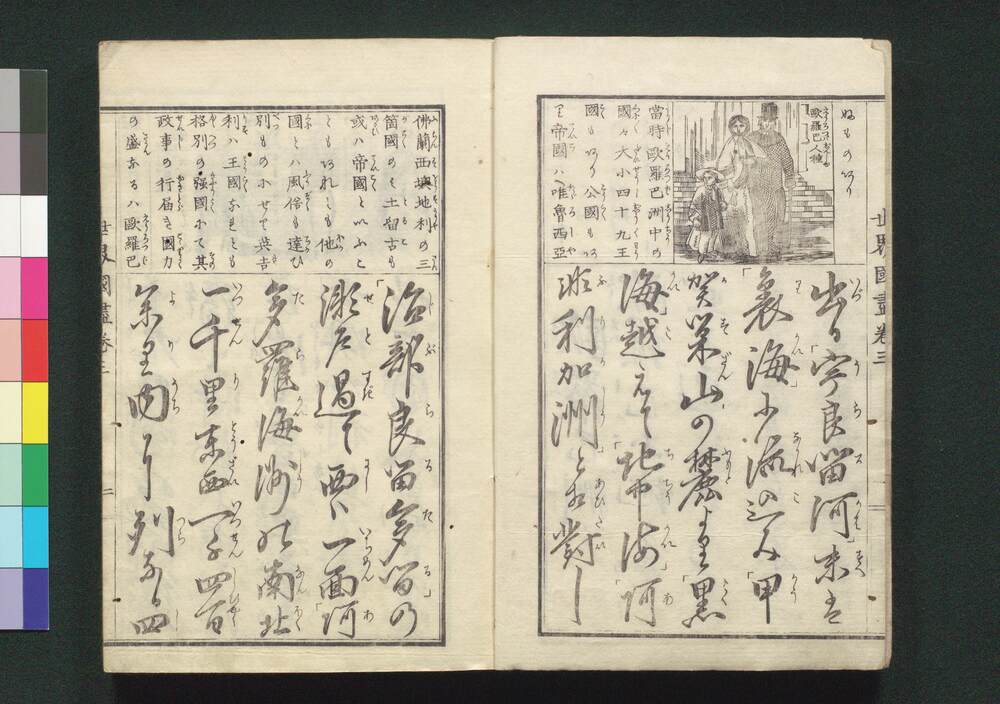 ぬものあり
歐羅巴人種
當時歐羅巴洲中の
國々大小四十九王
國もあり公國もあ
り帝國ハ唯魯西亞
出る「宇良留河」末は
「裏海」に流込み「甲
賀巣山の麓より「黒
海」越えて「地中海」阿
非利加洲」と相對し
世界國盡卷三
佛蘭西墺地利の三
箇國のみ土留古も
或ハ帝國といふこ
ともあれども他の
國とハ風俗も違ひ
別ものにせて英吉
利ハ王國なれども
格別の強國にて其
政事の行届き國力
の盛なるハ歐羅巴
「治部良留多留の
瀬戸過て西は一面「阿
多羅海洲の南北
一千里東西一千四百
余里内に列なる四
世界國盡卷三
二